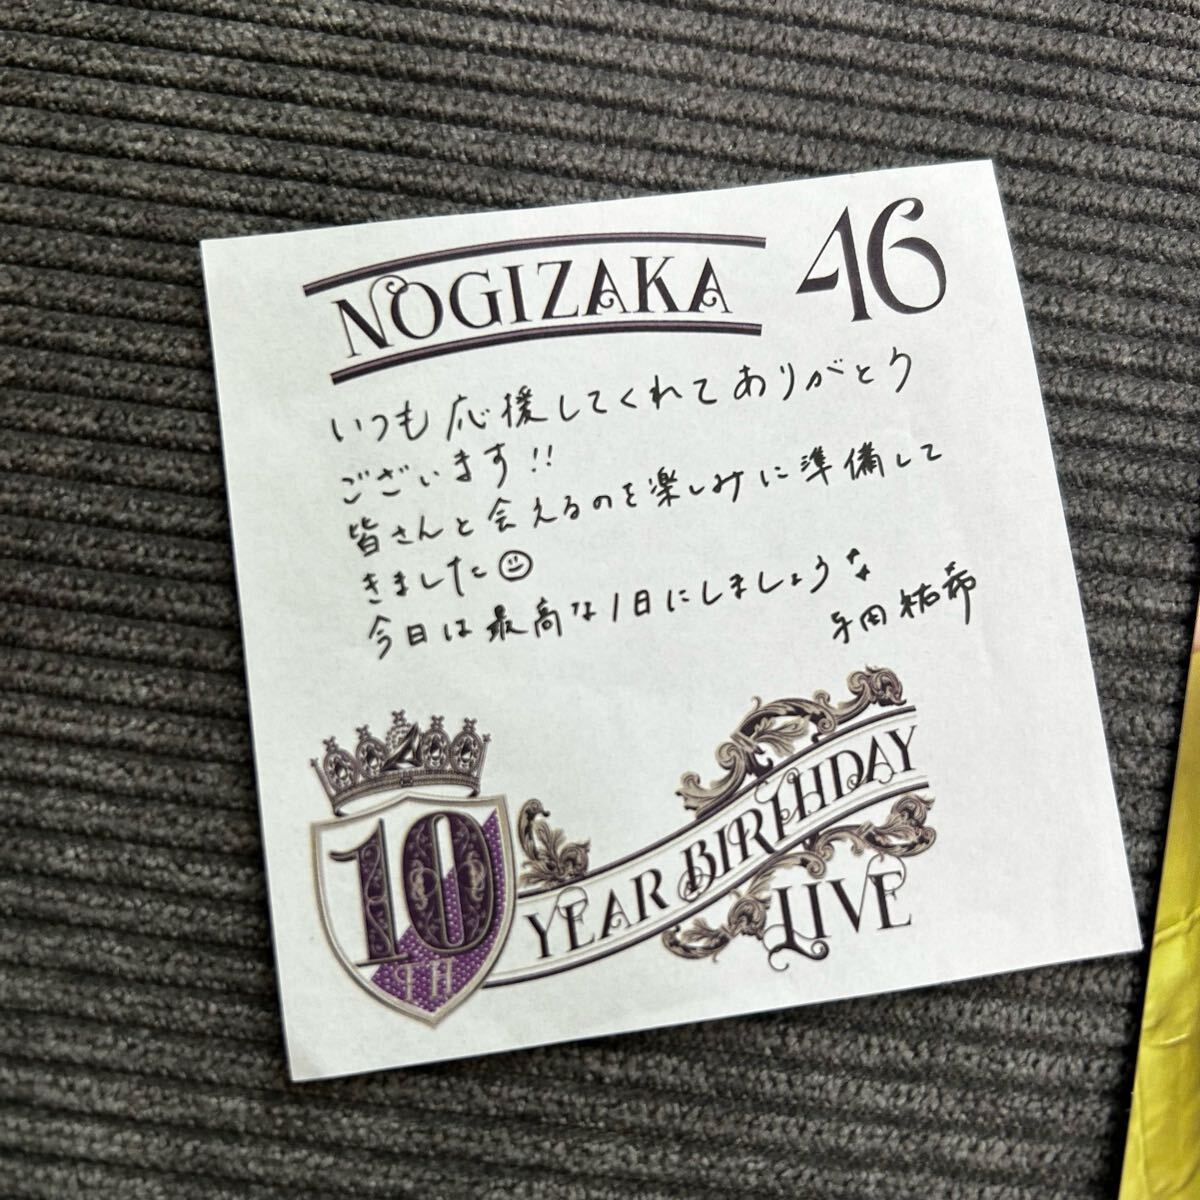 NOGIZAKA 46
いつも応援してくれてありがとう
ございます!!
皆さんと会えるのを楽しみに準備して
きました☺
今日は最高な1日にしましょう
与田祐希
10
TH
YEAR BIRTHDAY
LIVE